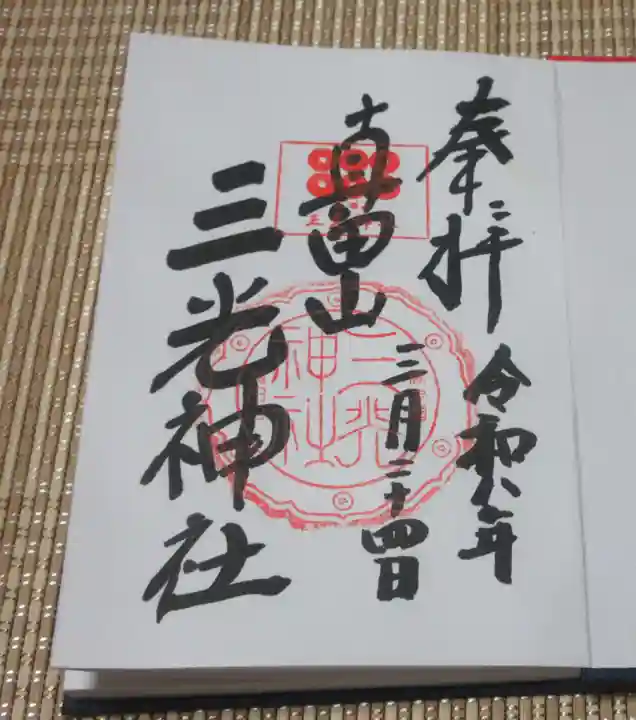 奉拝
令和八年
三月二十四日
真田山
三光神社
三光
神社